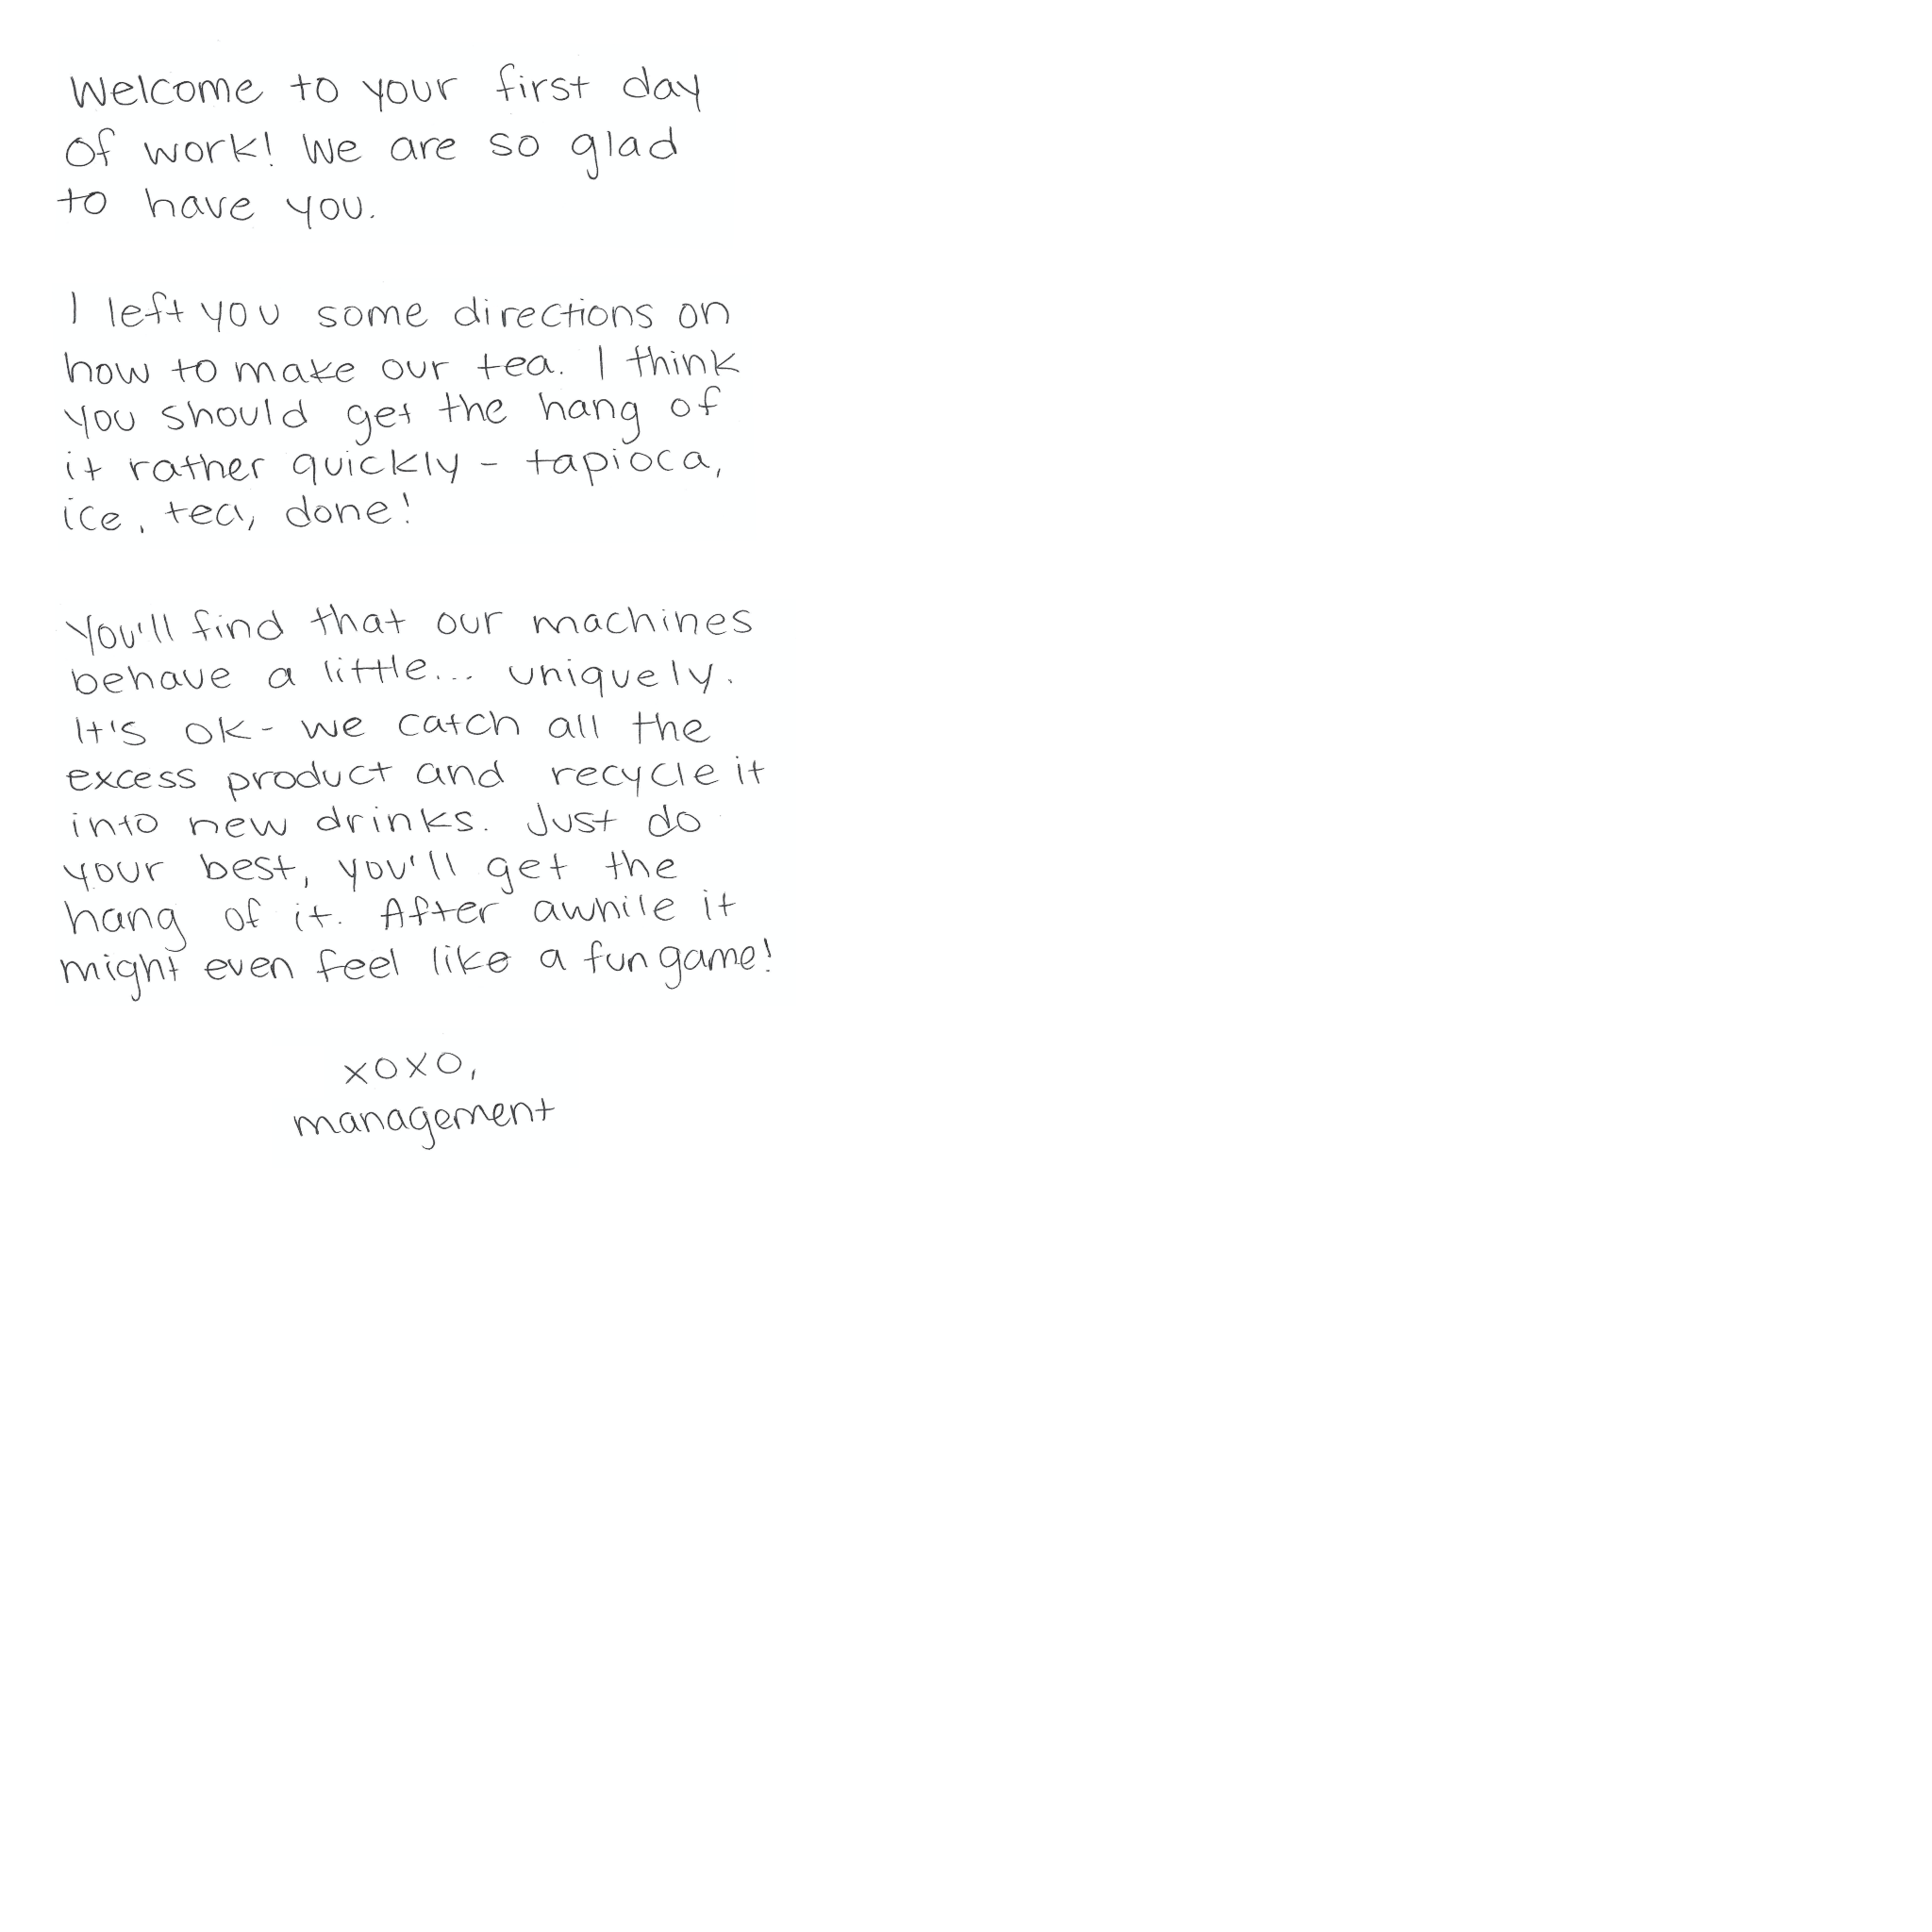 Welcome to your first day
of work! We are so glad
to have you.
I left you some directions on
how to make our tea. I think
you should get the hang of
it rather quickly - tapioca,
ice, tea, done!
You'll find that our machines
behave a little... uniquely.
It's ok - we catch all the
excess product and recycle it
into new drinks. Just do
your best, you'll get the
hang of it. After awhile it
might even feel like a fun game!
xoxo,
management